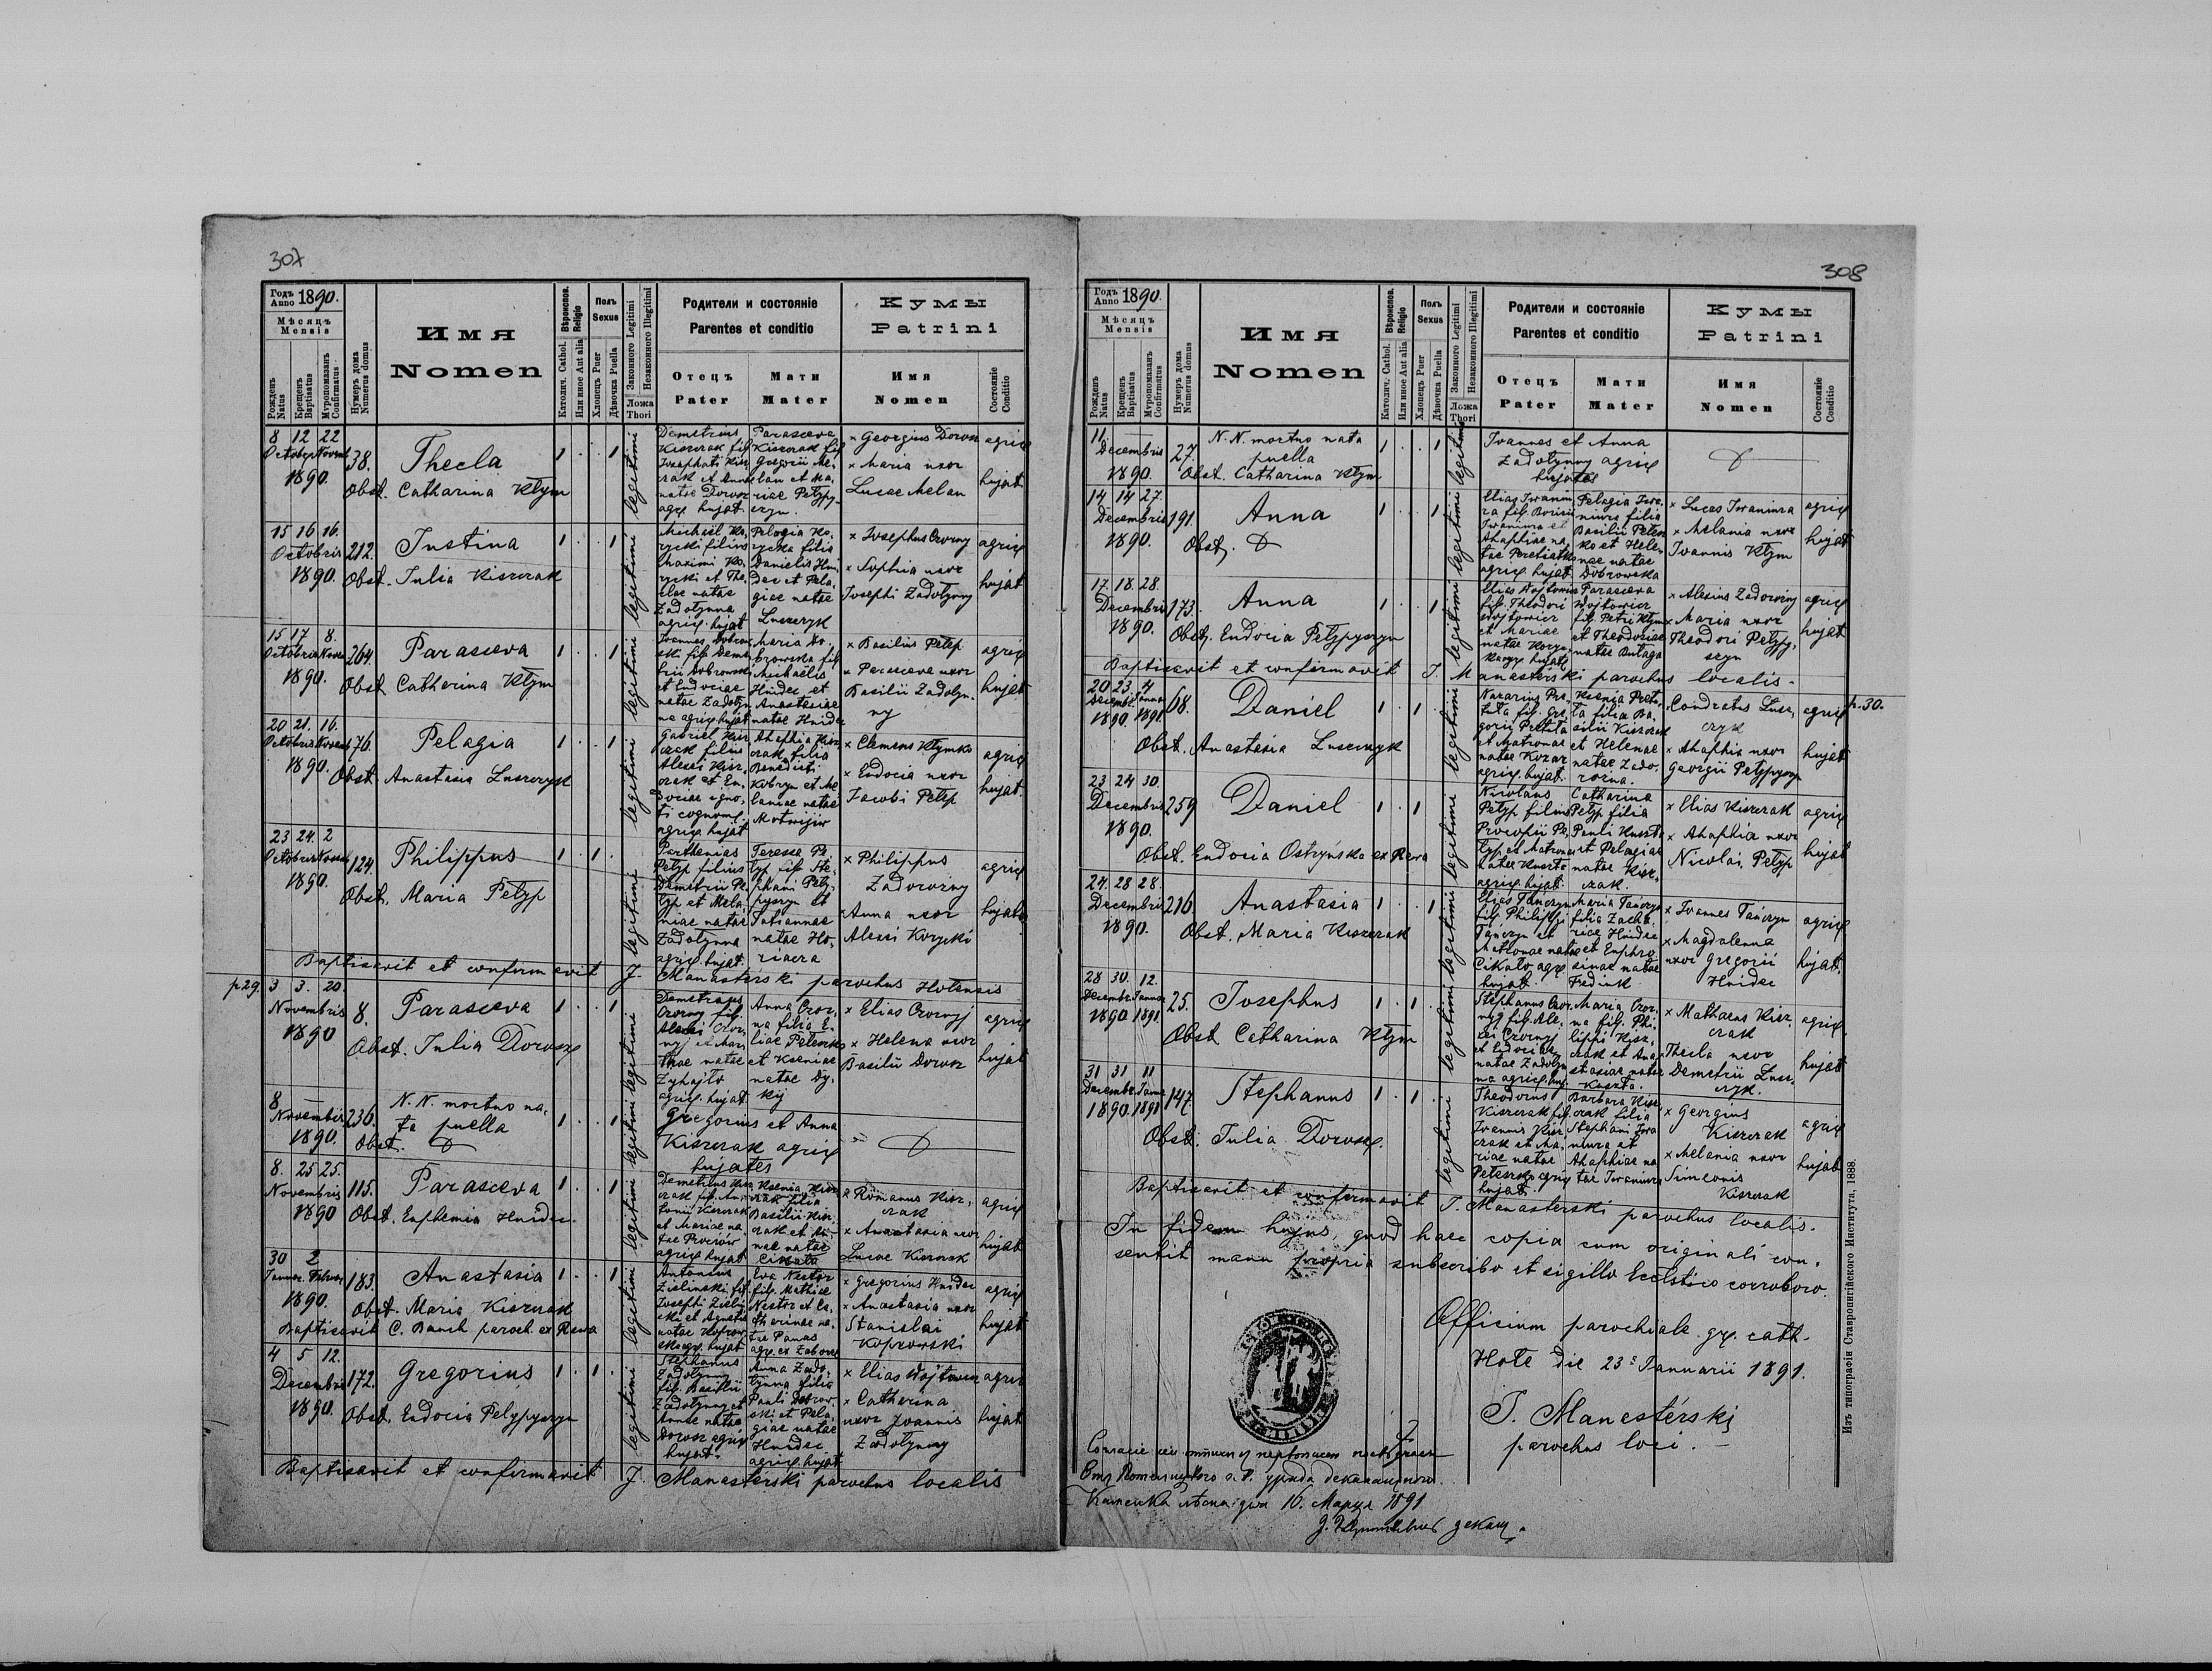 307
Годъ Anno 1890.
Мѣсяцъ
Mensis
Рожденъ Natus
Крещенъ Baptisatus
Мѵропомазанъ Confirmatus
Нумеръ дома Numerus domus
Имя
Nomen
Вѣроиспов. Religio
Католич. Cathol.
Или иное Aut alia
Полъ Sexus
Хлопецъ Puer
Дѣвочка Puella
Законного Legitimi
Незаконного Illegitimi
Ложа Thori
Родители и состояніе
Parentes et conditio
Отецъ Pater
Мати Mater
Кумы
Patrini
Имя Nomen
Состояніе Conditio
8 12 22
Octobr Novemb
1890
38.
Thecla
Obst. Catharina Kłym
1 . . 1
legitimi
Demetrius
Kiszczak fil
Josaphati Kisz
czak et Annae
natae Dorosz
agr. hujat.
Parasceva
Kiszczak fil
Gregorii Me-
lan et Ma-
riae Petypy-
szyn.
× Georgius Dorosz
× Maria uxor
Lucae Melan
agric
hujat.
15 16 16.
Octobris
1890.
212.
Justina
Obst. Julia Kiszczak
1 . . 1
legitimi
Michaël Ko-
rycki filius
Maximi Ko-
rycki et The-
clae natae
Zadotynna
agric. hujat
Pelagia Ko-
rycka filia
Danielis Hni-
dec et Pela-
giae natae
Luszczyk
× Josephus Czorny
× Sophia uxor
Josephi Zadotynny
agric
hujat
15 17 8.
Octobris Novem
1890.
264.
Parasceva
Obst. Catharina Kłym
1 . . 1
legitimi
Joannes Dobrow
ski fil. Deme-
trii Dobrowski
et Eudociae
natae Zadotyn
na agric. hujat
Maria Do-
browska fil
Michaëlis
Hnidec et
Anastasiae
natae Hnidec
× Basilius Petyp
× Parasceva uxor
Basilii Zadotyn-
ny
agric
hujat.
20 21. 16.
Octobris Novemb
1890.
76.
Pelagia
Obst. Anastasia Luszczyk
1 . . 1
legitimi
Gabriel Kisz
czak filius
Alexii Kisz-
czak et Eu-
dociae igno-
ti cognomi.
agric. hujat
Ahaphia Kisz
czak filia
Benedicti
Kobryn et Me
laniae natae
Motwijiw
× Clemens Kłymko
× Eudocia uxor
Jacobi Petyp
agric
hujat.
23 24. 2
Octobris Novemb
1890.
124.
Philippus
Obst. Maria Petyp
1 . 1 .
legitimi
Parthenius
Petyp filius
Demetrii Pe-
typ et Mela-
niae natae
Zadotynna
agric. hujat.
Teressa Pe
typ fil. Ste-
phani Pety-
pyszyn et
Tatiannae
natae Ho-
riacza
× Philippus
Zadorożny
× Anna uxor
Alexii Korycki
agric
hujat.
Baptisavit et confirmavit J. Manasterski parochus Hotensis
p.29.
3 3. 20.
Novembris
1890
8.
Parasceva
Obst. Julia Dorosz
1 . . 1
legitimi
Demetrius
Czorny fil.
Alexii Czor-
nyj et Mar-
thae natae
Zyhajto
agric. hujat
Anna Czor-
na filia E-
liae Petenko
et Kseniae
natae Dy-
kij
× Elias Czornyj
× Helena uxor
Basilii Dorosz
agric
hujat
8 —
Novembris
1890.
236.
N. N. mortuo na-
ta puella
Obst.
1 . . 1
legitimi
Gregorius et Anna
Kiszczak agric
hujates
8. 25 25.
Novembris
1890
115.
Parasceva
Obst. Euphemia Hnidec
1 . . 1
legitimi
Demetrius Kisz
czak fil. An-
tonii Kiszczak
et Mariae na-
tae Prociów
agric hujat
Ksenia Kisz
czak filia
Basilii Kisz-
czak et An-
nae natae
Cikało
× Romanus Kisz-
czak
× Anastasia uxor
Lucae Kiszczak
agric
hujat
30 2
Januar. Februar
1890.
183.
Anastasia
Obst. Maria Kiszczak
1 . . 1
legitimi
Antonius
Zielinski fil.
Josephi Zieliń
ski et Agnetis
natae Koprow
ska agr. hujat
Eva Nestor
fil. Mathiae
Nestor et Ca-
tharinae na-
tae Panas
agr. ex Zaborze
× Gregorius Hnidec
× Anastasia uxor
Stanislai
Koprowski
agric
hujat
Baptisavit C. Banch paroch. ex Rawa
4 5 12.
Decembris
1890.
172.
Gregorius
Obst. Eudocia Petypyszyn
1 . 1 .
legitimi
Stephanus
Zadotynny
fil. Basilii
Zadotynny et
Annae natae
Dorosz agric
hujat.
Anna Zado-
tynna filia
Pauli Dobrow-
ski et Pela-
giae natae
Hnidec
agric. hujat
× Elias Wojtowicz
× Catharina
uxor Joannis
Zadotynny
agric
hujat
Baptisavit et confirmavit J. Manasterski parochus localis
308
Годъ Anno 1890.
Мѣсяцъ
Mensis
Рожденъ Natus
Крещенъ Baptisatus
Мѵропомазанъ Confirmatus
Нумеръ дома Numerus domus
Имя
Nomen
Вѣроиспов. Religio
Католич. Cathol.
Или иное Aut alia
Полъ Sexus
Хлопецъ Puer
Дѣвочка Puella
Законного Legitimi
Незаконного Illegitimi
Ложа Thori
Родители и состояніе
Parentes et conditio
Отецъ Pater
Мати Mater
Кумы
Patrini
Имя Nomen
Состояніе Conditio
11. —
Decembris
1890.
27.
N. N. mortuo nata
puella
Obst. Catharina Kłym
1 . . 1
legitimi
Joannes et Anna
Zadotynny agric
hujates
14 14 27.
Decembris
1890.
191.
Anna
Obst.
1 . . 1
legitimi
Elias Iwaniu
ra fil. Borisii
Iwaniura et
Ahaphiae na-
tae Peretiatko
agric. hujat.
Pelagia Iwa-
niura filia
Basilii Peten
ko et Hele-
nae natae
Dobrowska
× Lucas Iwaniura
× Melania uxor
Joannis Kłym
agric
hujat
17 18 28.
Decembris
1890.
173.
Anna
Obst. Eudocia Petypyszyn
1 . . 1
legitimi
Elias Wojtowicz
fil. Theodori
Wojtowicz
et Mariae
natae Koryc-
ka agr. hujat
Parasceva
Wojtowicz
fil. Petri Kłym
et Theodosiae
natae Butaga
× Alexius Zadorożny
× Maria uxor
Theodori Petypy-
szyn
agric
hujat
Baptisavit et confirmavit J. Manasterski parochus localis.
20 23. 4
Decembr. Januar
1890. 1891.
68.
Daniel
Obst. Anastasia Luszczyk
1 . 1 .
legitimi
Nazarius Pre-
tuta fil. Gre-
gorii Pretuta
et Matronae
natae Kozar
agric. hujat.
Ksenia Pretu-
ta filia Ba-
silii Kiszczak
et Helenae
natae Zado-
rożna.
Condratus Lusz-
czyk
× Ahaphia uxor
Georgii Petypyszyn
agric
hujat
p. 30.
23 24 30.
Decembris
1890.
259
Daniel
Obst. Eudocia Ostryńska ex Rawa
1 . 1 .
legitimi
Nicolaus
Petyp filius
Procopii Pe-
typ et Matronae
natae Kuszta
agric. hujat.
Catharina
Petyp filia
Pauli Kuszta
et Pelagiae
natae Kisz-
czak.
× Elias Kiszczak
× Ahaphia uxor
Nicolai Petyp
agric
hujat
24. 28 28.
Decembris
1890.
216
Anastasia
Obst. Maria Kiszczak
1 . . 1
legitimi
Elias Tańczyn
fil. Philippi
Tańczyn et
Matronae natae
Cikało agr.
hujat.
Maria Tańczyn
filia Zacha-
riae Hnidec
et Euphro-
sinae natae
Fediuk
× Joannes Tańczyn
× Magdalenna
uxor Gregorii
Hnidec
agric
hujat.
28 30. 12.
Decembr. Januar
1890 1891.
25.
Josephus
Obst Catharina Kłym
1 . 1 .
legitimi
Stephanus Czor-
nyj fil. Ale-
xii Czornyj
et Eudociae
natae Zadotyn
na agric. huj.
Maria Czor-
na fil. Phi-
lippi Kisz-
czak et Ana-
stasiae natae
Kuszta.
× Mathaeus Kisz-
czak
Thecla uxor
Demetrii Lusz-
czyk.
agric.
hujat
31 31 11
Decembr Januar
1890. 1891
147.
Stephanus
Obst. Julia Dorosz.
1 . 1 .
legitimi
Theodorus
Kiszczak fil.
Joannis Kisz-
czak et Ma-
riae natae
Petenko agric
hujat.
Barbara Kisz-
czak filia
Stephani Iwa
niura et
Ahaphiae na
tae Iwaniura
× Georgius
Kiszczak
× Melania uxor
Simeonis
Kiszczak
agric
hujat
Baptisavit et confirmavit J. Manasterski parochus localis.
In fidem hujus, quod haec copia cum originali con-
sentit manu propria subscribo et sigillo Eccltico corroboro.
Officium parochiale gr. cath.
Hote die 23 Januarii 1891.
J. Manasterskj
parochus loci. —
Каменка лѣсна дня 16. Марця 1891
декан.
Изъ типографіи Ставропигійского Института, 1888.